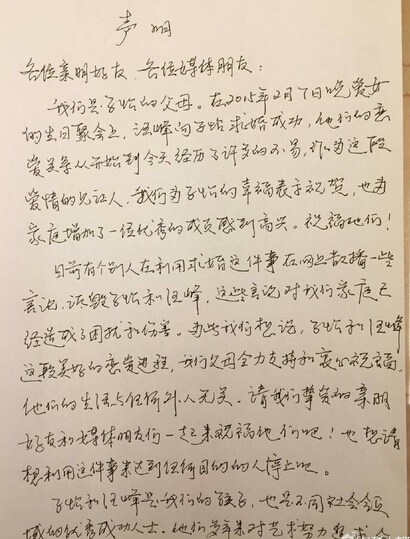 声明
各位亲朋好友、各位媒体朋友:
我们是子怡的父母。在2015年2月7日晚爱女
的生日聚会上,汪峰向子怡求婚成功,他们的恋
爱关系从开始到今天经历了许多的不易,作为这段
爱情的见证人,我们为子怡的幸福表示祝贺,也为
家庭增加了一位优秀的成员感到高兴。祝福他们!
目前有个别人在利用求婚这件事在网上散播一些
言论,诋毁子怡和汪峰,这些言论对我们家庭已
经造成了困扰和伤害。为此我们想说,子怡和汪峰
这段美好的恋爱进程,我们父母全力支持和衷心祝福,
他们的生活与任何外人无关。请我们挚爱的亲朋
好友和媒体朋友们一起来祝福他们吧!也想请
想利用这件事来达到任何目的的人停止吧。
子怡和汪峰是我们的孩子,也是不同社会领
域的优秀成功人士。他们多年来对艺术努力追求